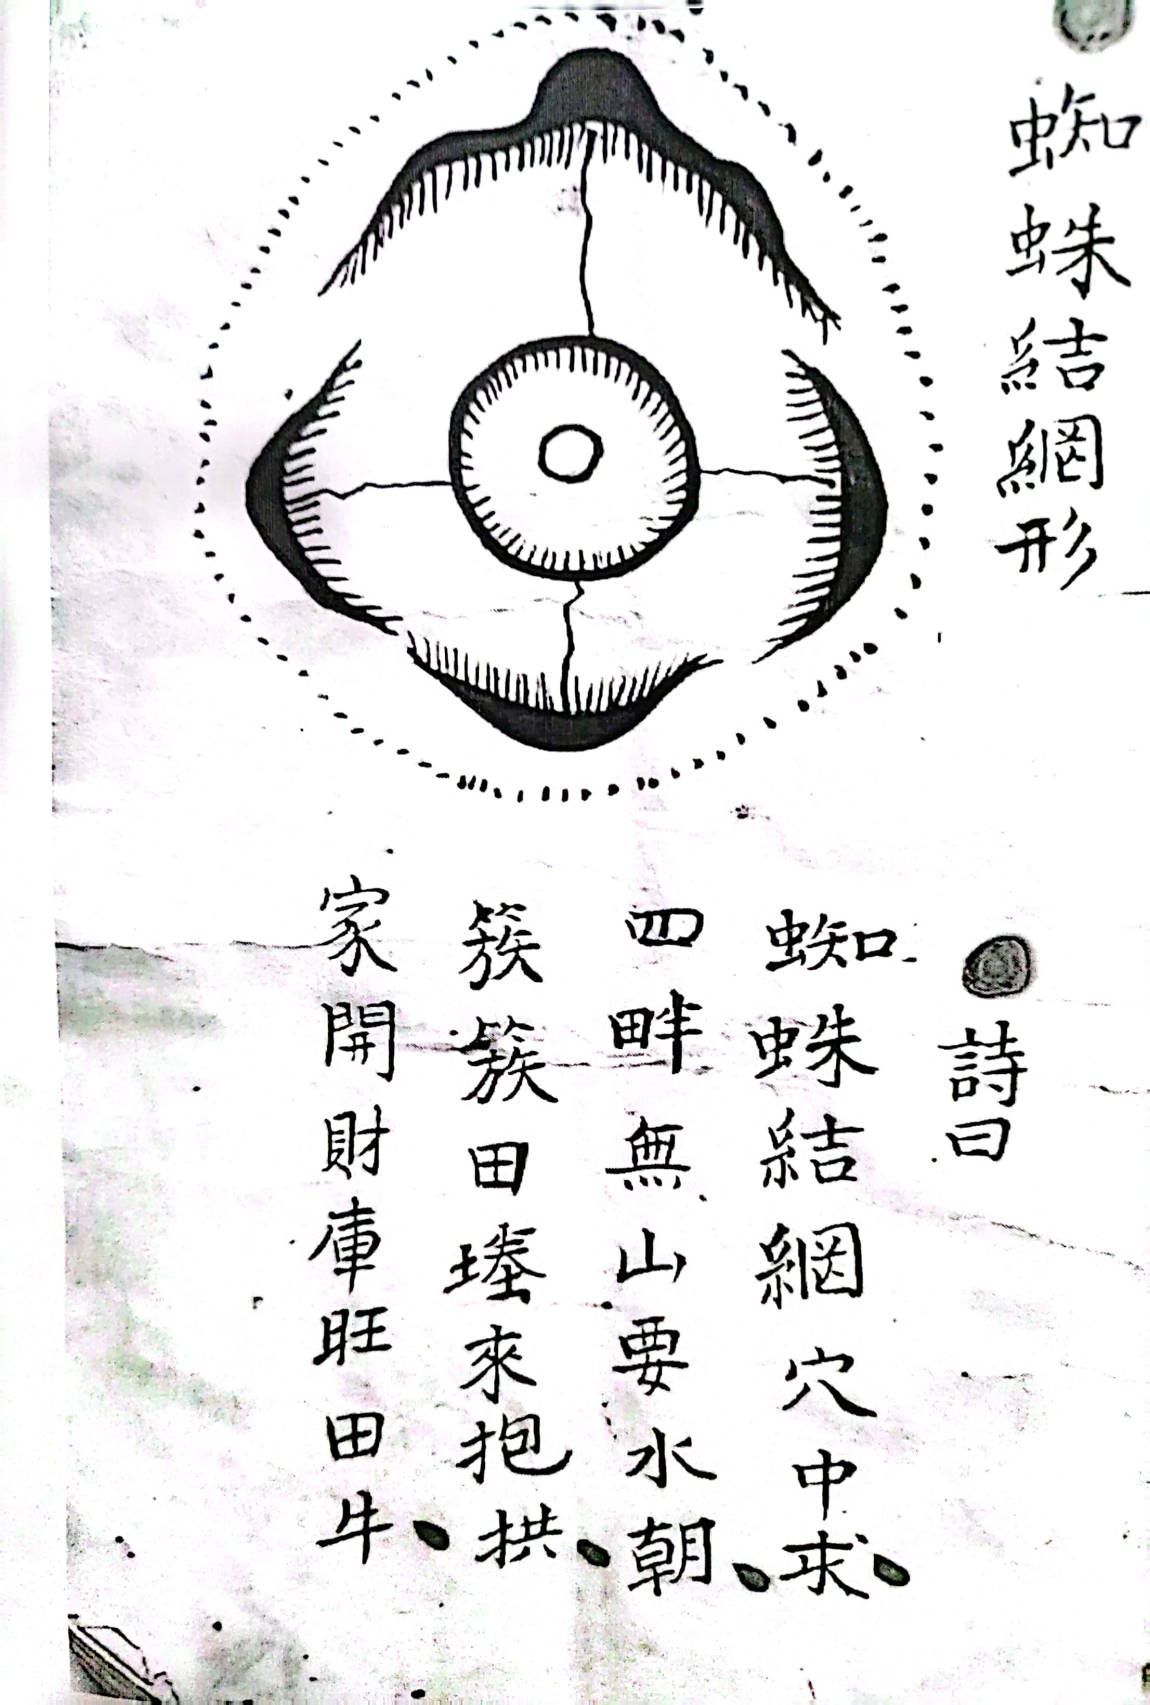 蜘蛛結網形
詩曰
蜘蛛結網穴中求
四畔無山要水朝
簇簇田塍來抱拱
家開財庫旺田牛